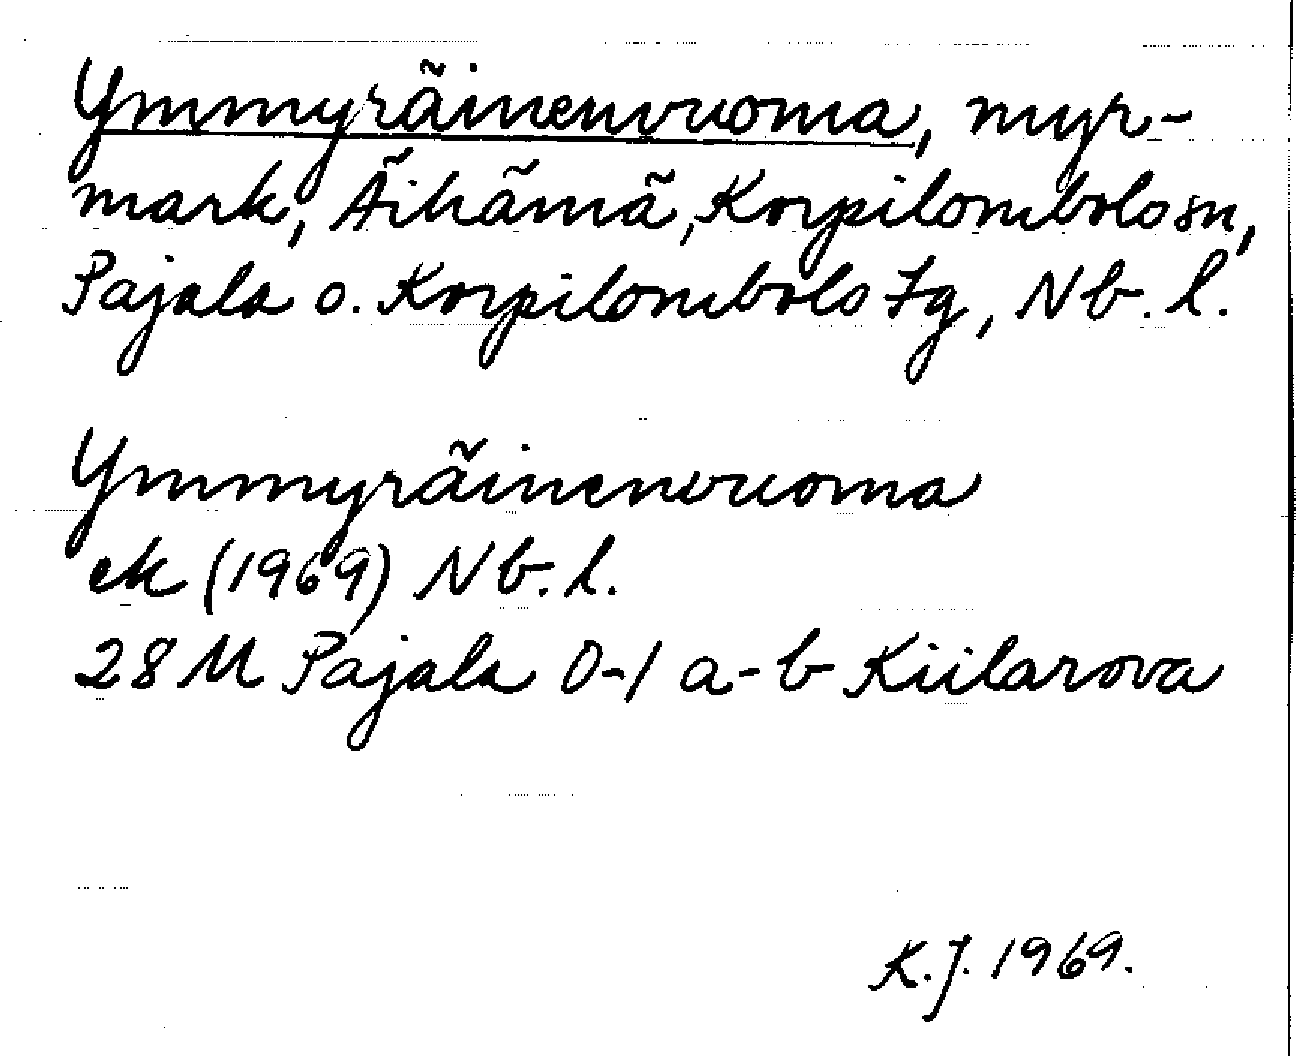 Ymmyräinenvuoma, myr-
mark, Äihämä, Korpilombolo sn,
Pajala o. Korpilombolo tg, Nb. l.
Ymmyräinenvuoma
ek (1969) Nb. l.
28 M Pajala 0-1 a-b Kiilarova
K.J. 1969.